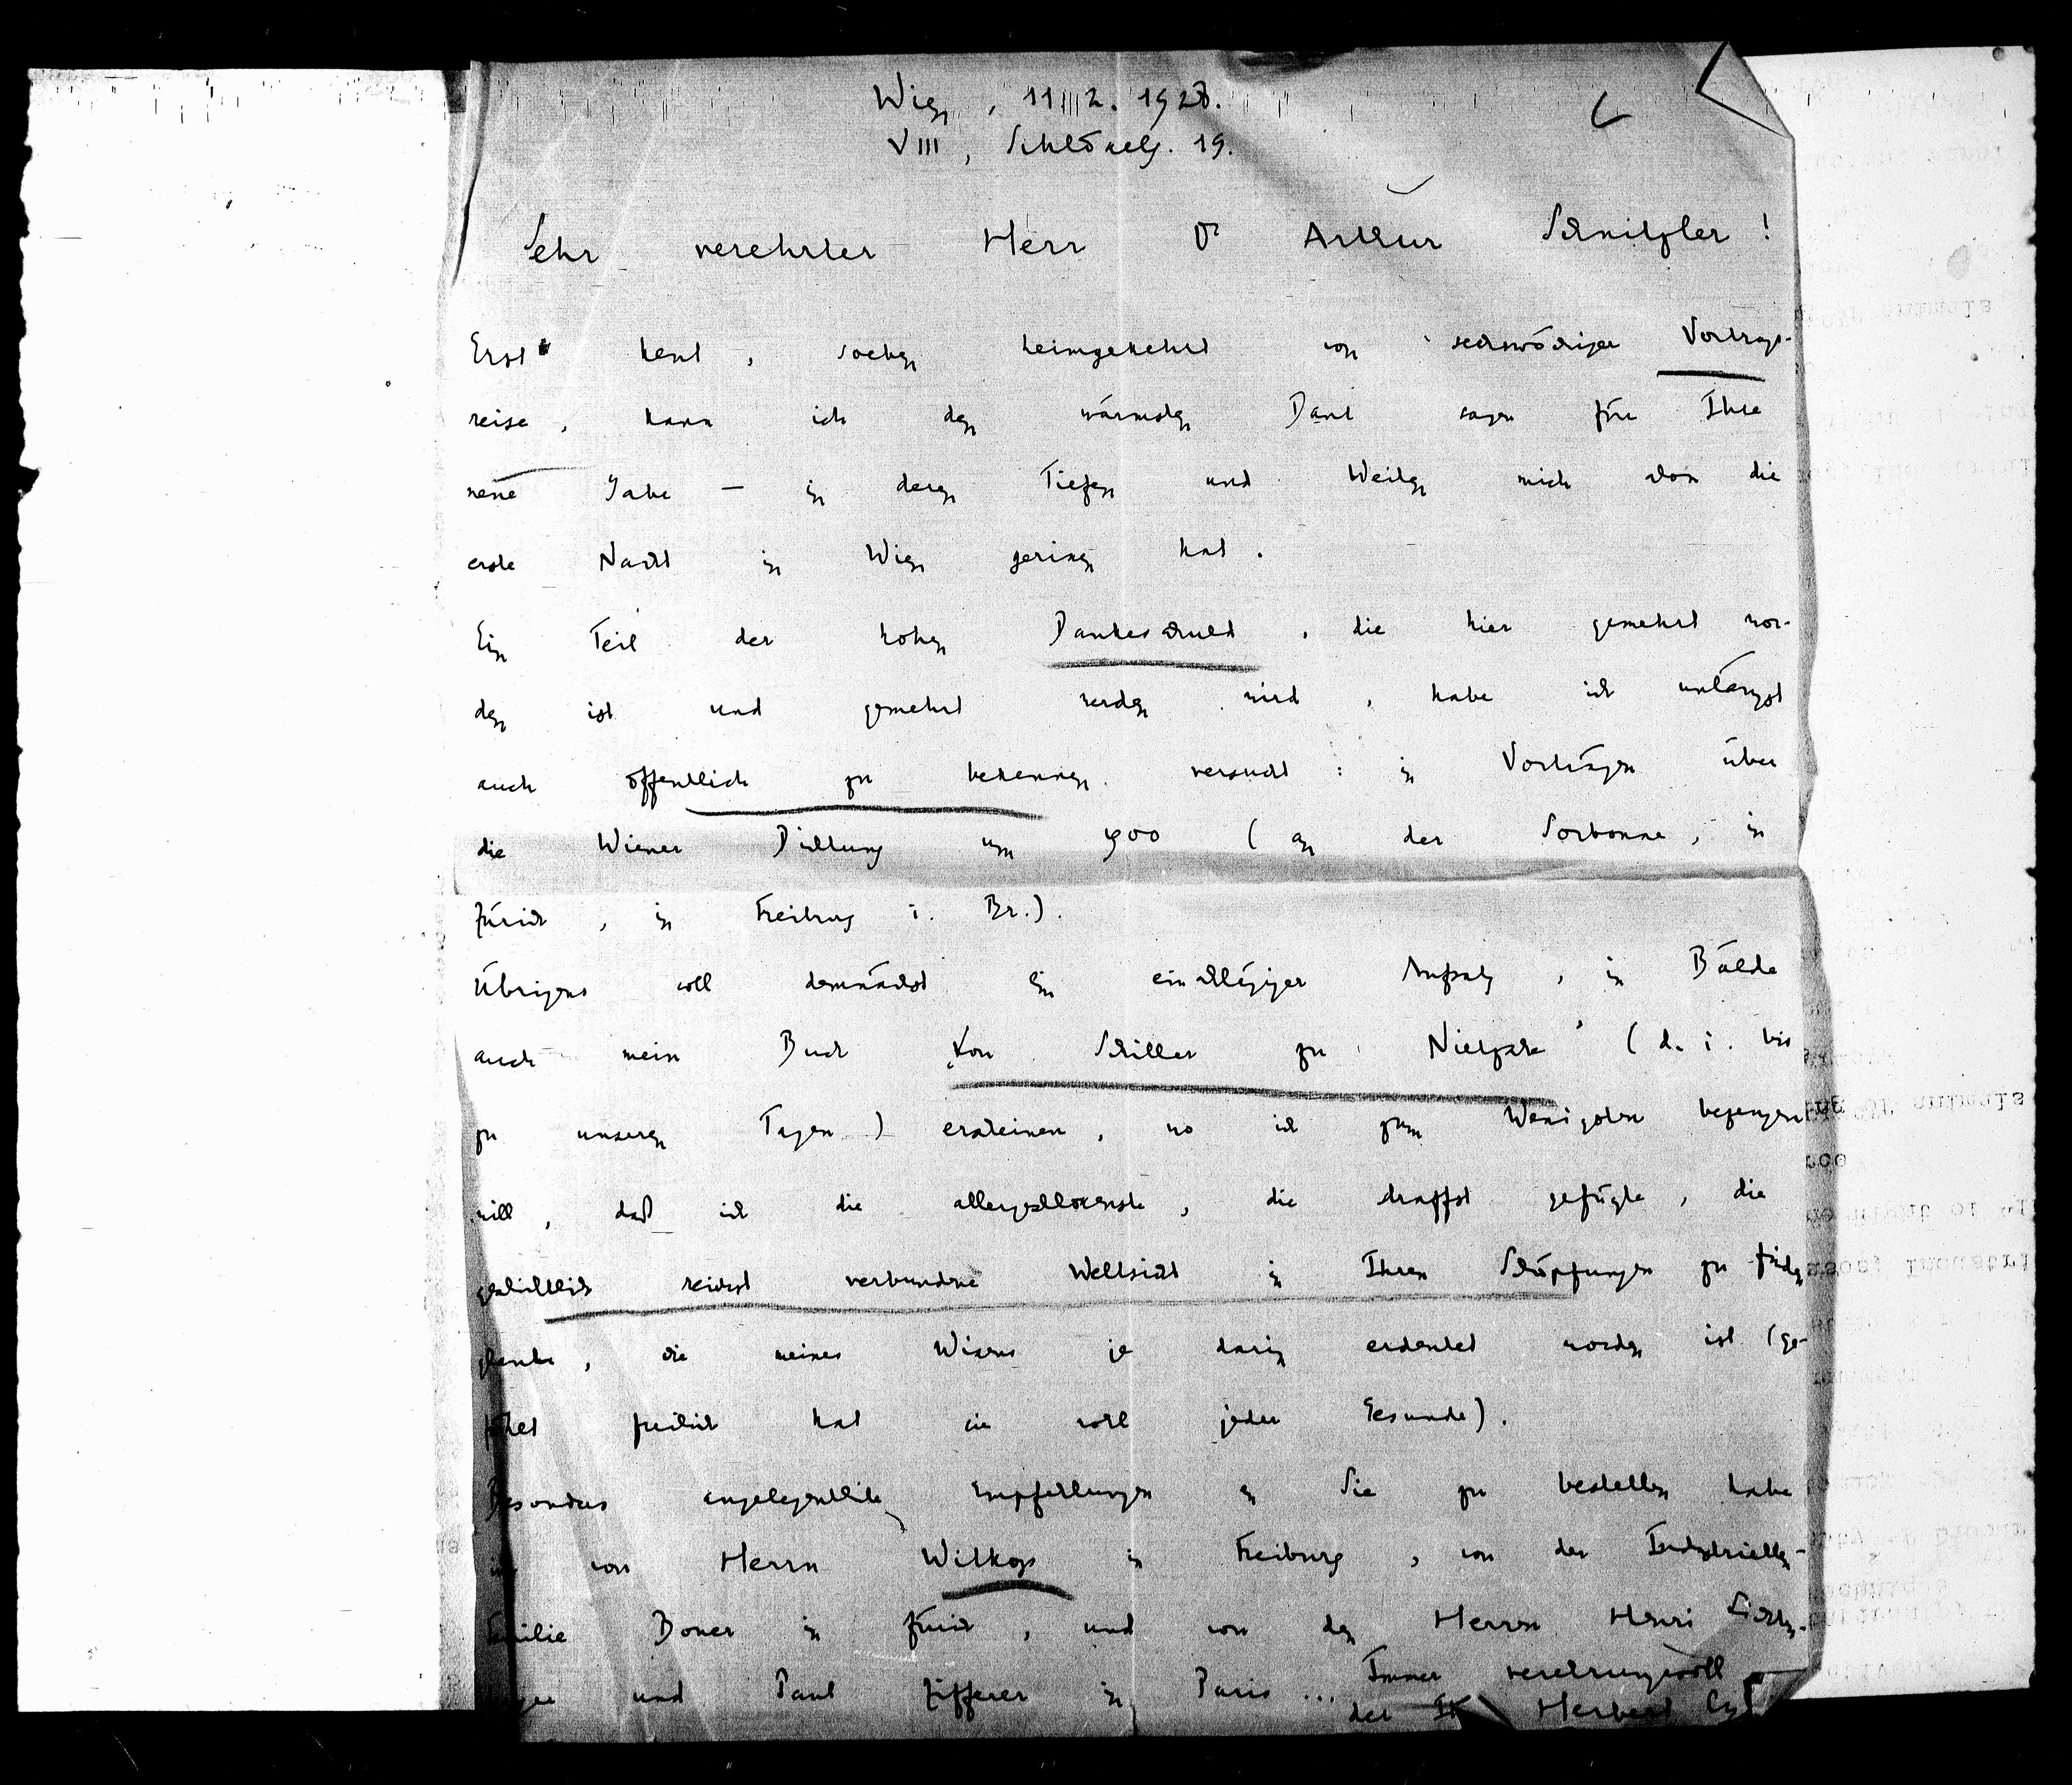 Wien, 11. 2. 1928.
VIII, Schlösselg. 19.
Sehr verehrter Herr Dr Arthur Schnitzler!
Erst heut, soeben heimgekehrt von sechswöchiger Vortrags-
reise, kann ich den wärmsten Dank sagen für Ihre
neue Gabe – in deren Tiefen und Weiten mich schon die
erste Nacht in Wien gerissen hat.
Ein Teil der hohen Dankesschuld, die hier gemehrt wor-
den ist und gemehrt werden wird, habe ich unlängst
auch öffentlich zu bekennen versucht: in Vorträgen über
die Wiener Dichtung um 1900 (an der Sorbonne, in
Zürich, in Freiburg i. Br.).
Übrigens soll demnächst ein einschlägiger Aufsatz, in Bälde
auch mein Buch „Von Schiller zu Nietzsche“ (d. i. bis
zu unseren Tagen) erscheinen, wo ich zum Wenigsten bezeugen
will, daß ich die allergeschlossenste, die straffst gefügte, die
geschichtlich reichst verbundne Weltsicht in Ihren Schöpfungen zu finden
glaube, die meines Wissens je darin erdeutet worden ist (ge-
fühlt freilich hat sie wohl jeder Gesunde).
Besonders angelegentliche Empfehlungen an Sie zu bestellen habe
ich von Herrn Witkop in Freiburg, von der Industriellen-
familie Boner in Zürich, und von den Herren Henri Lichten-
berger und Paul Zifferer in Paris ... Immer verehrungsvoll
der Ihre Herbert Cysarz